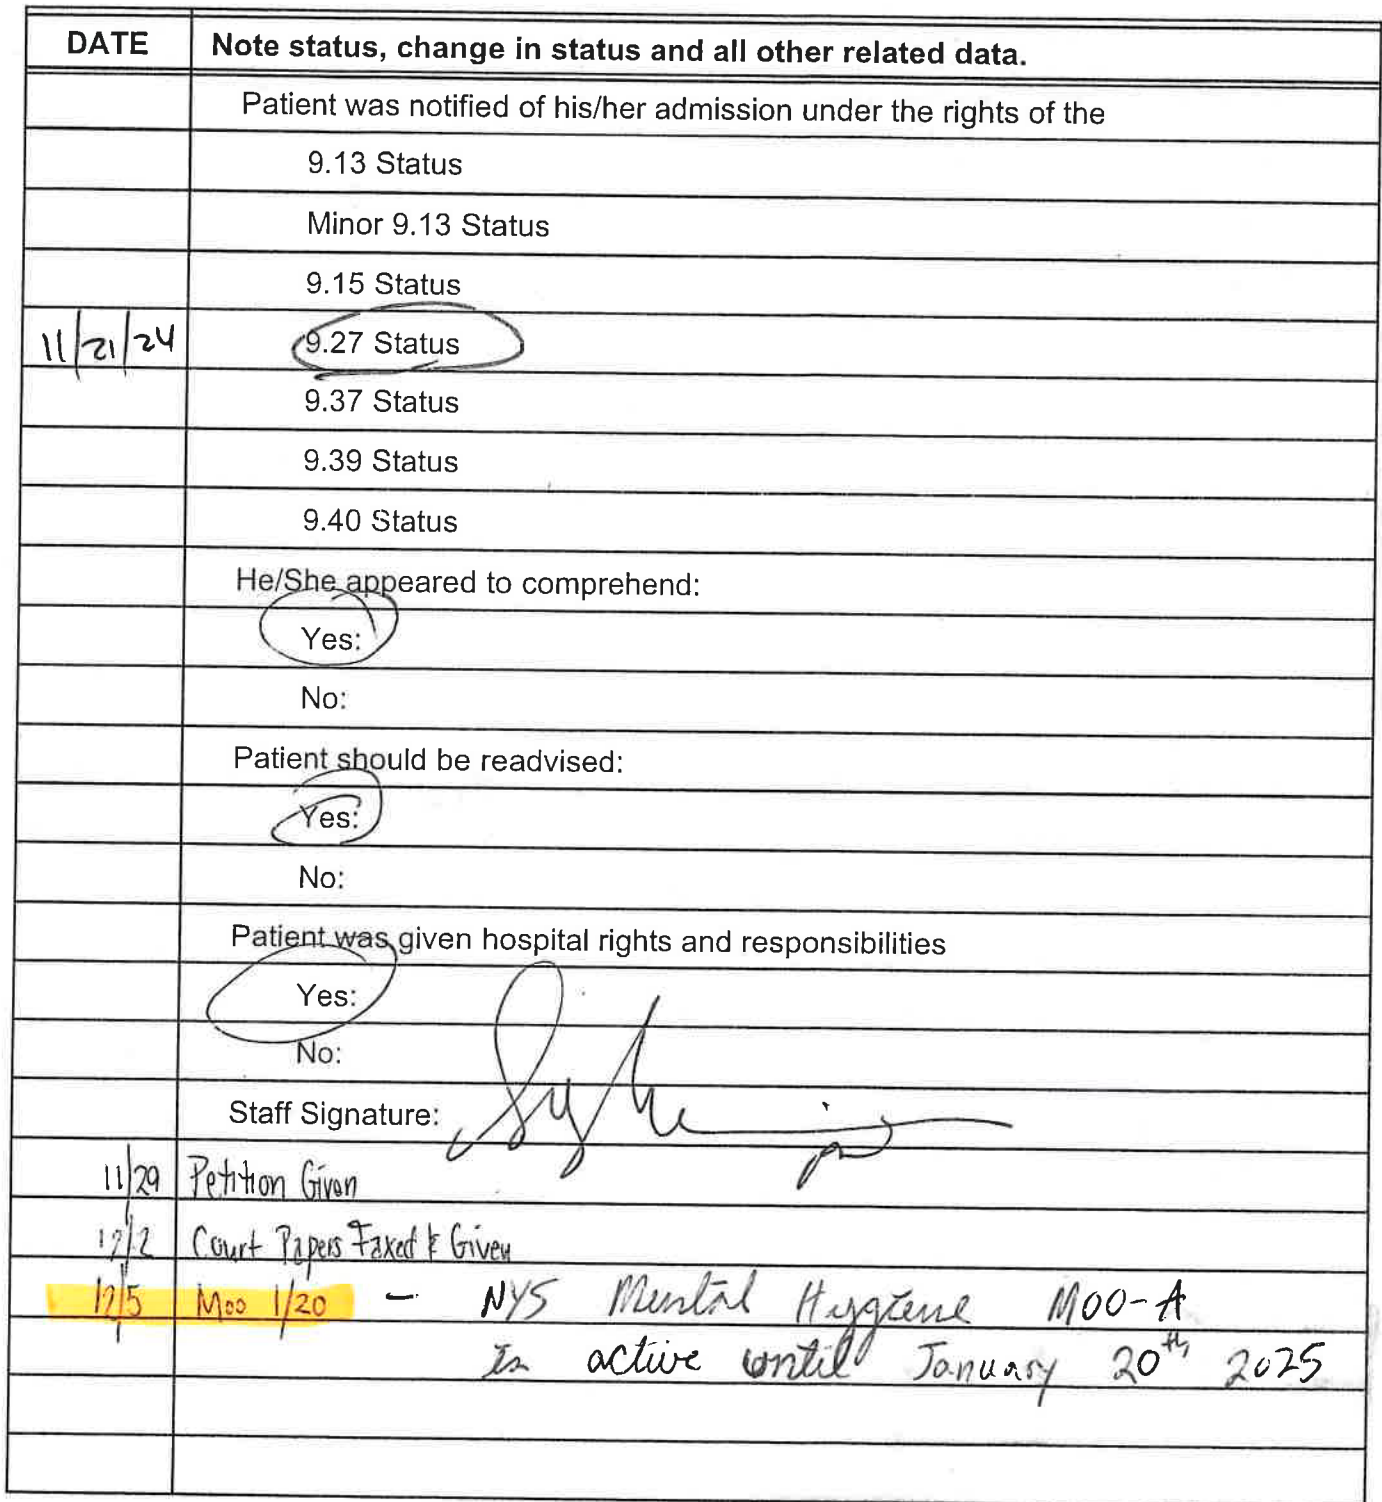 DATE Note status, change in status and all other related data.
Patient was notified of his/her admission under the rights of the
9.13 Status
Minor 9.13 Status
9.15 Status
11/21/24 9.27 Status
9.37 Status
9.39 Status
9.40 Status
He/She appeared to comprehend:
Yes:
No:
Patient should be readvised:
Yes:
No:
Patient was given hospital rights and responsibilities
Yes:
No:
Staff Signature:
11/29 Petition Given
12/2 Court Papers Faxed & Given
12/5 Moo 1/20 - NYS Mental Hygiene MOO-A
is active until January 20th 2025